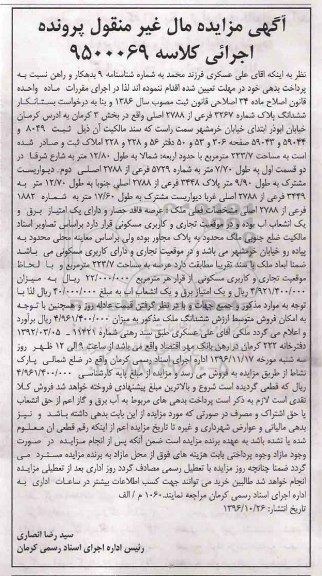 آگهی مزایده مال غیر منقول پرونده
اجرائی کلاسه ۹۵۰۰۰۶۹
نظر به اینکه اقای علی عسکری فرزند محمد به شماره شناسنامه ۹ بدهکار و راهن نسبت به
پرداخت بدهی خود در مهلت تعیین شده اقدام ننموده اند لذا در اجرای مقررات ماده واحده
قانون اصلاح ماده ۳۴ اصلاحی قانون ثبت مصوب سال ۱۳۸۶ و بنا به درخواست بستانکار
ششدانگ پلاک شماره ۳۲۶۷ فرعی از ۲۷۸۸ اصلی واقع در بخش ۳ کرمان به ادرس کرمان
خیابان ابوذر ابتدای خیابان خرمشهر سمت راست که سند مالکیت آن ذیل ثبت ۸۰۴۹ و
۵۹۰۴۴ و ۵۹۰۴۳ صفحه ۳۰۶ و ۵۳ و ۵۰ دفتر ۵۶ و ۲۲۸ و ۲۲۸ املاک ثبت و صادر شده
است به مساحت ۲۳۳/۷ مترمربع با حدود اربعه: شمالا به طول ۱۲/۸۰ متر به شارع شرقا در
دو قسمت اول به طول ۷/۷۰ متر به شماره ۵۷۲۹ فرعی از ۲۷۸۸ اصلی دوم دیواریست
مشترک به طول ۹/۹۰ متر پلاک ۳۴۴۸ فرعی از ۲۷۸۸ اصلی جنوبا به طول ۱۲/۷۰ متر به
۳۴۴۹ فرعی از ۲۷۸۸ اصلی غربا دیواریست مشترک به طول ۱۷/۶۰ متر به شماره ۱۸۸۲
فرعی از ۲۷۸۸ اصلی مشخصات فعلی ملک : عرصه فاقد حصار و دارای یک امتیاز برق و
یک انشعاب اب بوده و در موقعیت تجاری و کاربری مسکونی قرار دارد براساس تصاویر اسناد
مالکیت ضلع جنوبی ملک محدود به پلاک مجاور بوده ولی براساس معاینه محلی محدود به
پیاده رو خیابان خرمشهر می باشد و در موقعیت تجاری و دارای کاربری مسکونی می باشد
ضمنا ابعاد ملک با سند تقریبا مطابقت دارد عرصه به مساحت ۲۲۳/۷ مترمربع و با لحاظ
موقعیت تجاری و کاربری مسکونی از قرار هر مترمربع ۲۲/۰۰۰/۰۰۰ ریال به میزان
۴/۹۲۱/۴۰۰/۰۰۰ ریال و یک امتیاز برق و یک انشعاب آب به مبلغ ۴۰/۰۰۰/۰۰۰ ریال لذا با
توجه به موارد مذکور و جمیع جهات و با در نظر گرفتن قیمت عادله روز و همچنین با توجه
به امکان فروش متوسط ارزش ششدانگ ملک مذکور به میزان ۴/۹۶۱/۴۰۰/۰۰۰ ریال برآورد
و اعلام می گردد ملکی آقای علی عسکری طبق سند رهنی شماره ۱۱۴۲۱ـ ۱۳۹۲/۰۳/۰۵
دفترخانه ۲۲۲ کرمان در رهن بانک مهر اقتصاد واقع می باشد از ساعت ۹ الی ۱۲ ظهر روز
سه شنبه مورخه ۱۳۹۶/۱۱/۱۷ اداره اجرای اسناد رسمی کرمان واقع در ضلع شمالی پارک
نشاط از طریق مزایده به فروش می رسد و مزایده از مبلغ پایه کارشناسی ۴/۹۶۱/۴۰۰/۰۰۰
ریال که قطعی گردیده است شروع و بالاترین مبلغ پیشنهادی فروخته خواهد شد فروش کلا
نقدی است لازم به ذکر است پرداخت بدهی های مربوط به آب برق و گاز اعم از حق انشعاب
یا حق اشتراک و مصرف در صورتی که مورد مزایده از این بابت بدهی داشته باشد و نیز
بدهی مالیاتی و عوارض شهرداری و غیره تا تاریخ مزایده اعم از اینکه رقم قطعی ان معلوم
شده یا نشده باشد به عهده برنده مزایده است ضمن آنکه پس از انجام مزایده در صورت
وجود مازاد وجوه پرداختی بابت هزینه های فوق از محل مازاد به برنده مزایده مسترد می
گردد ضمنا چنانچه روز مزایده با تعطیل رسمی مصادف گردد روز اداری بعد از تعطیلی مزایده
انجام خواهد شد طالبین خرید می توانند جهت کسب اطلاعات بیشتر در ساعات اداری به
اداره اجرای اسناد رسمی کرمان مراجعه نمایند.۱۰۶۰ م / الف
تاریخ انتشار: ۱۳۹۶/۱۰/۲۶
سید رضا انصاری
رئیس اداره اجرای اسناد رسمی کرمان